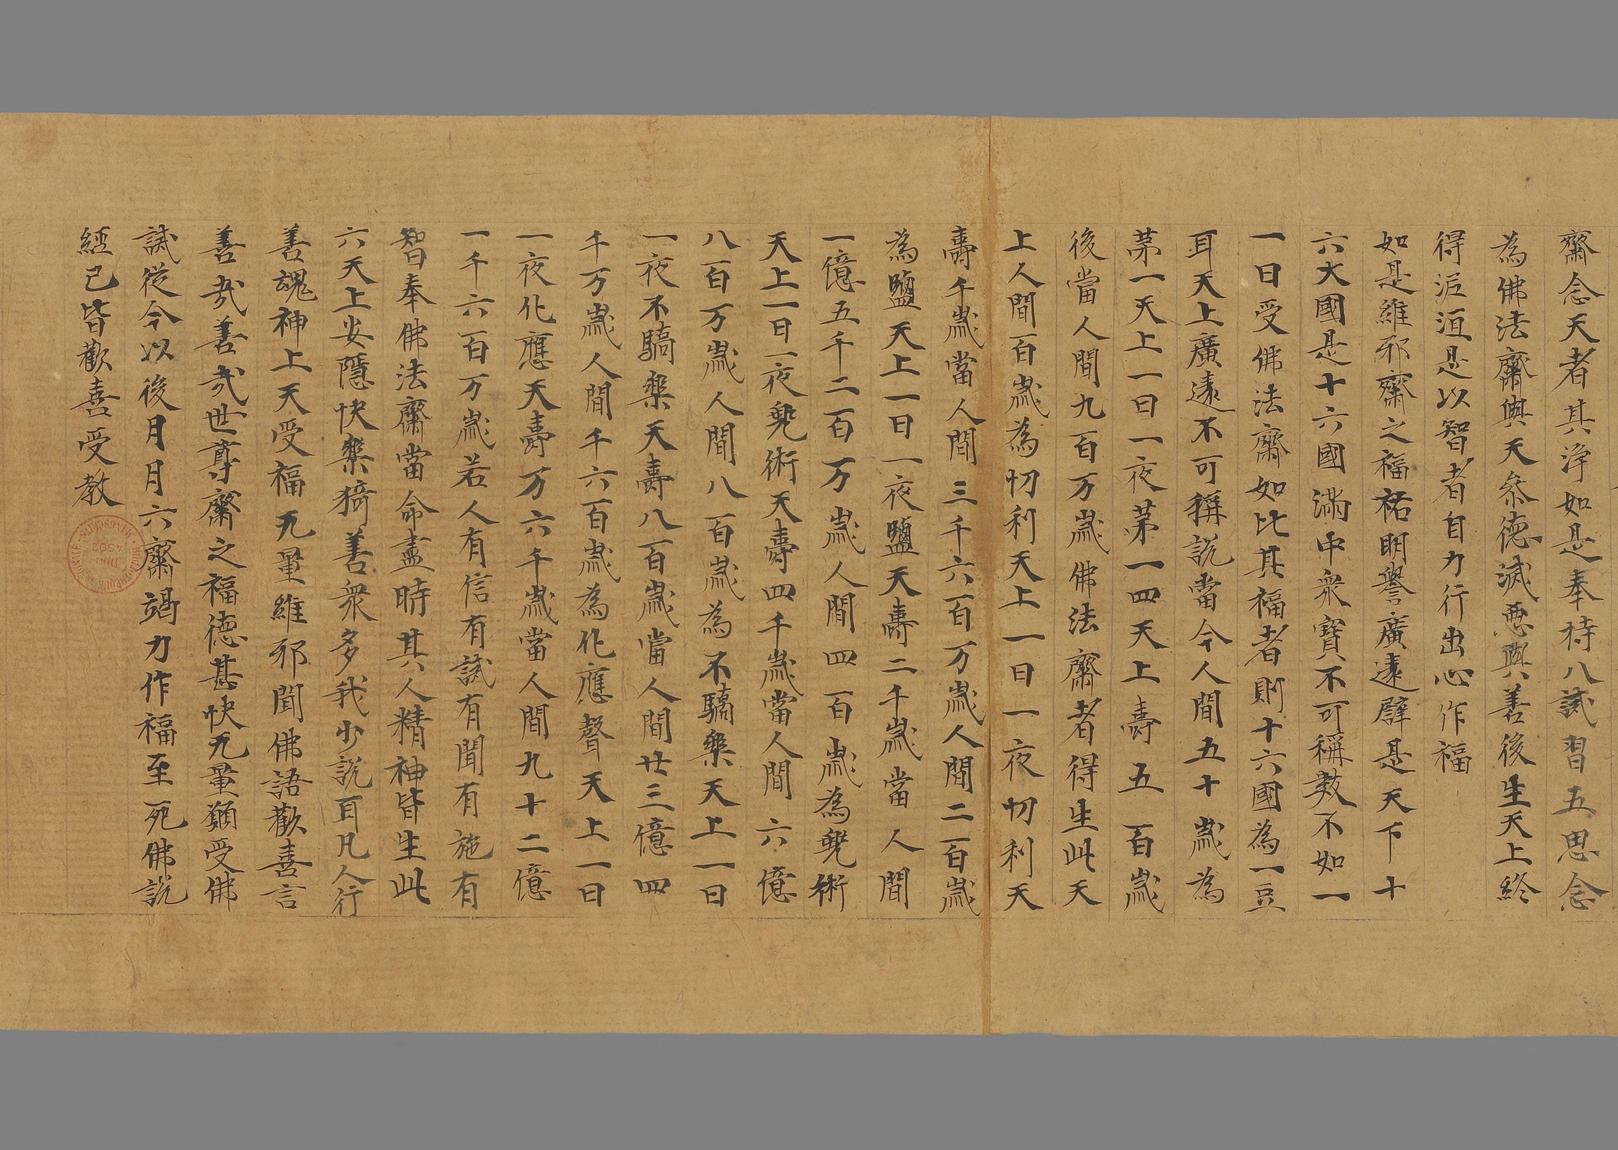 齋念天者其淨如是奉持八誡習五思念
為佛法齋與天參德滅惡興善後生天上終
得泥洹是以智者自力行出心作福
如是維邪齋之福祐明譽廣遠譬是天下十
六大國是十六國滿中衆寶不可稱數不如一
一日受佛法齋如比其福者則十六國為一豆
耳天上廣遠不可稱說當今人間五十歲為
苐一天上一日一夜苐一四天上壽五百歲
後當人間九百万歲佛法齋者得生此天
上人間百歲為忉利天上一日一夜忉利天
壽千歲當人間三千六百万歲人間二百歲
為鹽天上一日一夜鹽天壽二千歲當人間
一億五千二百万歲人間四百歲為兜術
天上一日一夜兜術天壽四千歲當人間六億
八百万歲人間八百歲為不驕樂天上一日
一夜不驕樂天壽八百歲當人間廿三億四
千万歲人間千六百歲為化應聲天上一日
一夜化應天壽万六千歲當人間九十二億
一千六百万歲若人有信有誡有聞有施有
智奉佛法齋當命盡時其人精神皆生此
六天上安隱快樂猗善衆多我少說耳凡人行
善魂神上天受福无量維邪聞佛語歡喜言
善哉善哉世尊齋之福德甚快无量願受佛
誡從今以後月月六齋竭力作福至死佛說
經已皆歡喜受教